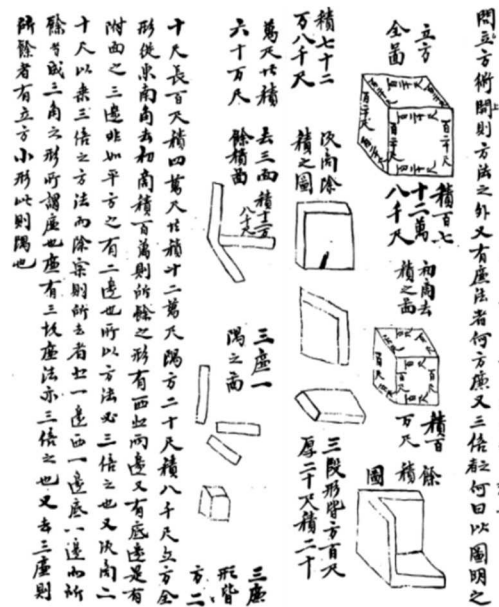 問立方術開則方法之外又有廉法者何方廉又三倍之何曰以圖明之
立方
全圖
百二十尺
百二十尺
百二十尺
積百七
十二萬
八千尺
初商去
積之圖
積百
萬尺
餘
積
圖
積七十二
萬八千尺
次商除
積之圖
三段形皆方百尺
厚二十尺積二十
萬尺共積
六十万尺
去三面
餘積圖
積十二萬
八千尺
三廉一
隅之圖
三廉
形皆
方二
十尺長百尺積四萬尺共積十二萬尺隅方二十尺積八千尺立方全
形從東南角去初商積百萬則所餘之形有西北兩邊又有底邊是有
附面之三邊非如平方之有二邊也所以方法必三倍之也又次商二
十尺以乘三倍之方法而除實則所去者北一邊西一邊底一邊而所
餘者成三角之形所謂廉也廉有三故廉法亦三倍之也又去三廉則
所餘者有立方小形此則隅也